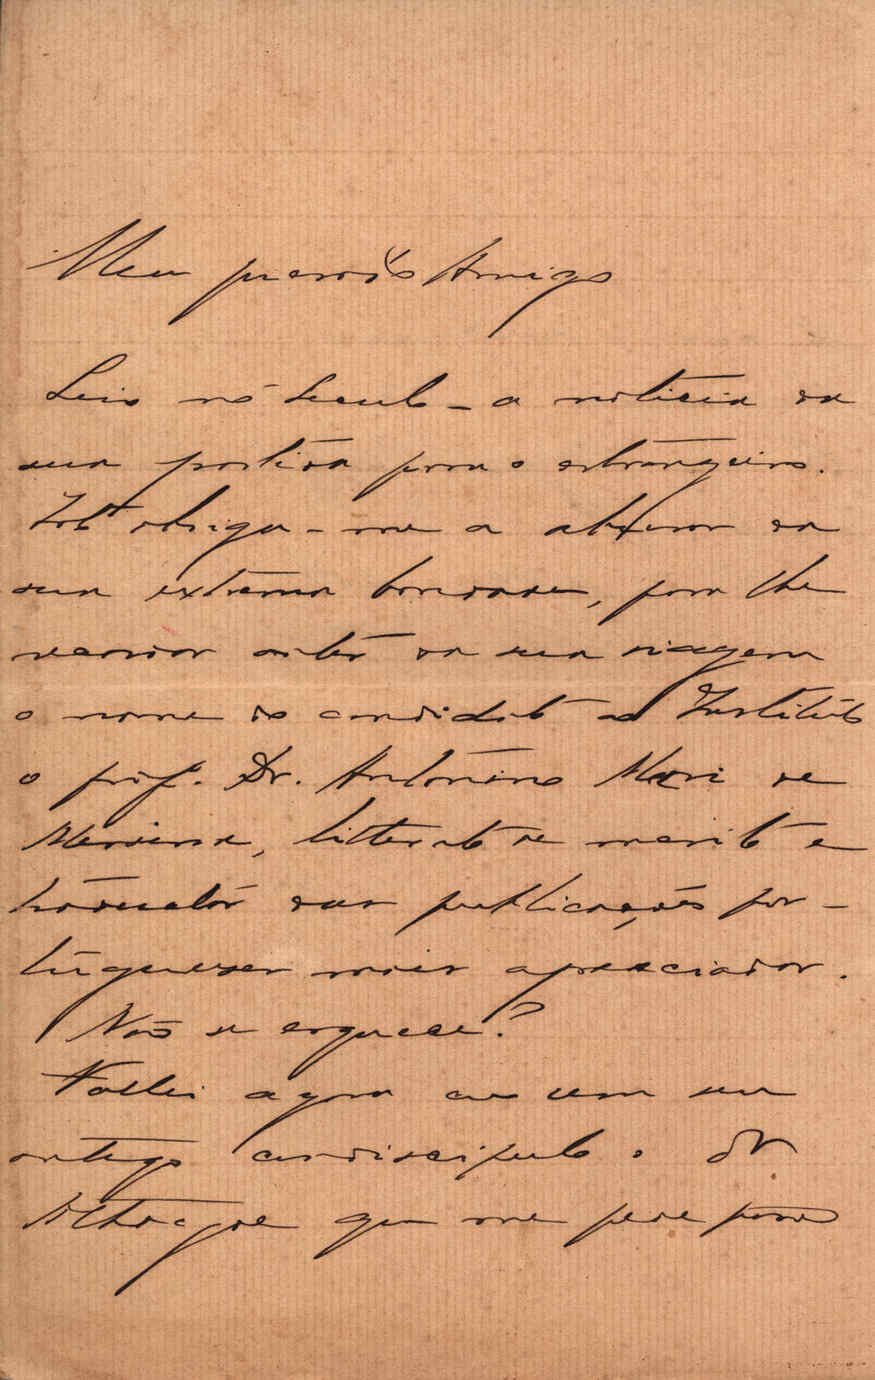 Meu presado Amigo
Leio no Seculo – a noticia da
sua partida para o estrangeiro.
Isto obriga-me a abusar da
sua extrema bondade, para lhe
recordar antes da sua viagem
o nome do candidato ao Instituto
o prof. Dr. Antonino Mari de
Messina, litterato de merito e
traductor das publicações por-
tuguezas mais apreciadas.
Não se esquece?
Fallei agora com um seu
antigo condiscipulo o Dr
que me pede para